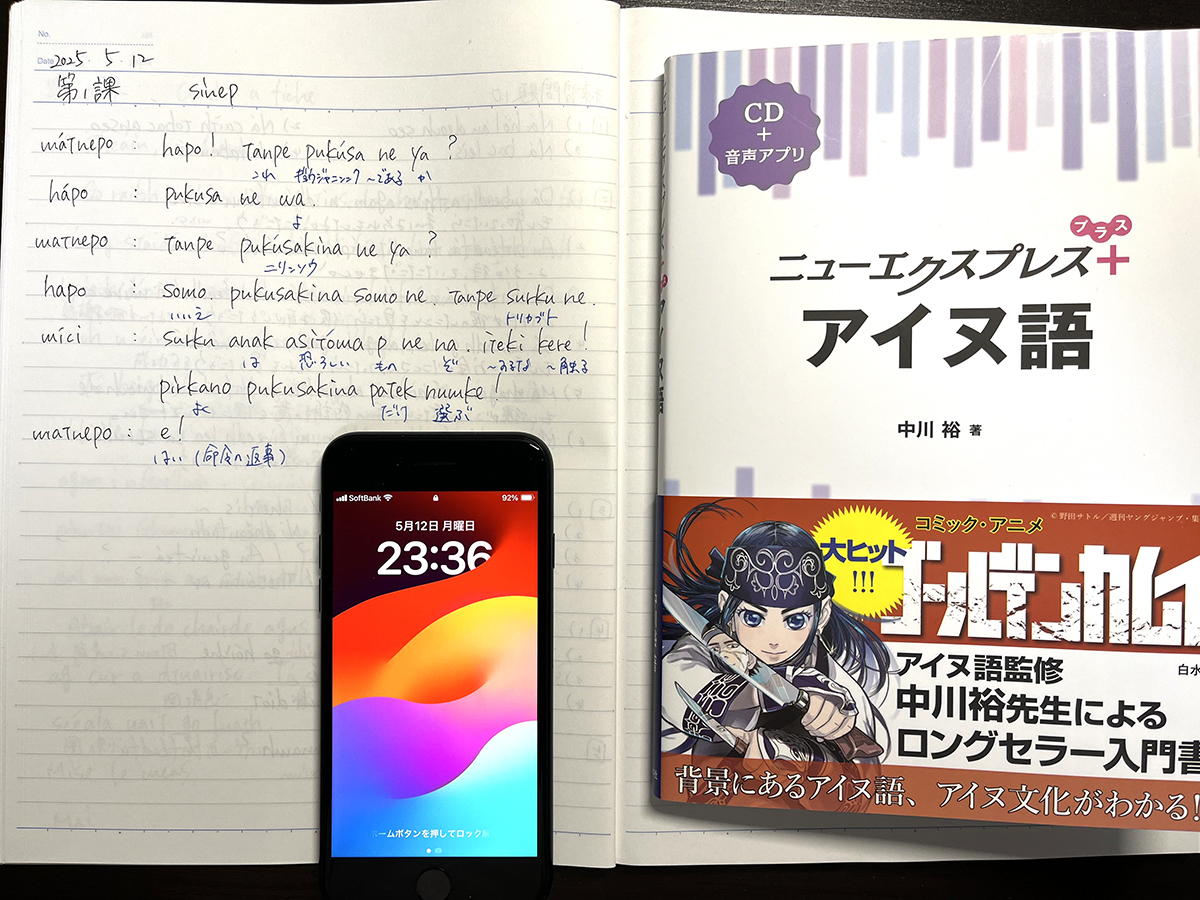 No.
Date 2025. 5. 12
第1課 sinep
mátnepo : hapo! Tanpe pukúsa ne ya?
これ ギョウジャニンニク ～である か
hápo : pukusa ne wa.
よ
matnepo : Tanpe pukúsakina ne ya?
ニリンソウ
hapo : somo. pukusakina somo ne. Tanpe surku ne.
いいえ トリカブト
míci : surku anak asitóma p ne na. iteki kere!
は 恐ろしい もの ぞ ～するな ～触る
pirkano pukusakina patek numke!
よく だけ 選ぶ
matnepo : e!
はい (命令へ返事)
SoftBank 92%
5月12日 月曜日
23:36
ホームボタンを押してロック解
CD
+
音声アプリ
プラス
ニューエクスプレス+
アイヌ語
中川 裕 著
©野田サトル／週刊ヤングジャンプ・集
コミック・アニメ
大ヒット
!!!
ゴールデンカムイ
白水
アイヌ語監修
中川裕先生による
ロングセラー入門書
背景にあるアイヌ語、アイヌ文化がわかる!